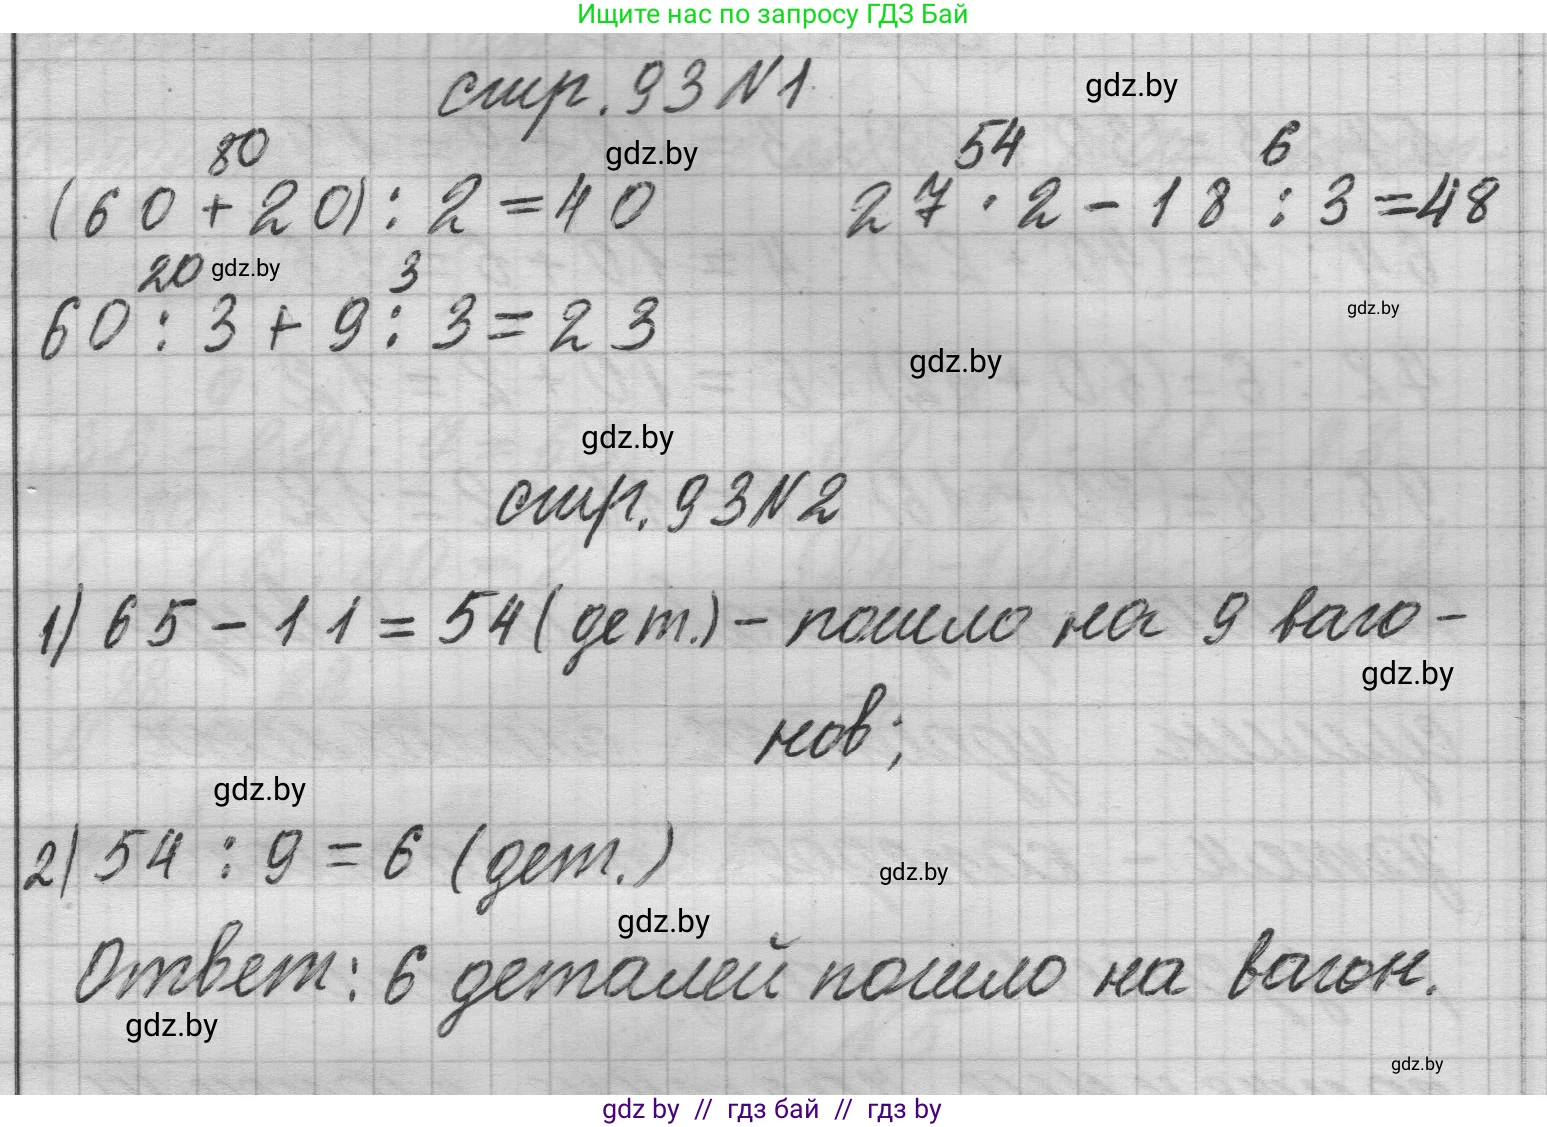 Ищите нас по запросу ГДЗ Бай
стр. 93 N 1
gdz.by
80
gdz.by
54
6
(60+20):2=40
27·2-18:3=48
20
gdz.by
3
60:3+9:3=23
gdz.by
gdz.by
gdz.by
стр. 93 N 2
1) 65-11=54(дет.)- пошло на 9 ваго-
gdz.by
нов;
gdz.by
2) 54:9=6 (дет.)
gdz.by
gdz.by
Ответ: 6 деталей пошло на вагон.
gdz.by
gdz.by
gdz by // гдз бай // гдз by